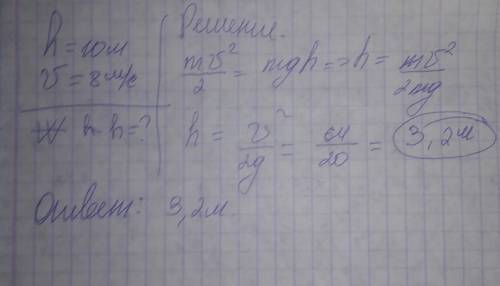 h = 10м
v = 8 м/с
h - ?
Решение.
mv²/2 = mgh => h = mv²/2mg
h = v²/2g = 64/20 = 3,2м
Ответ: 3,2м.